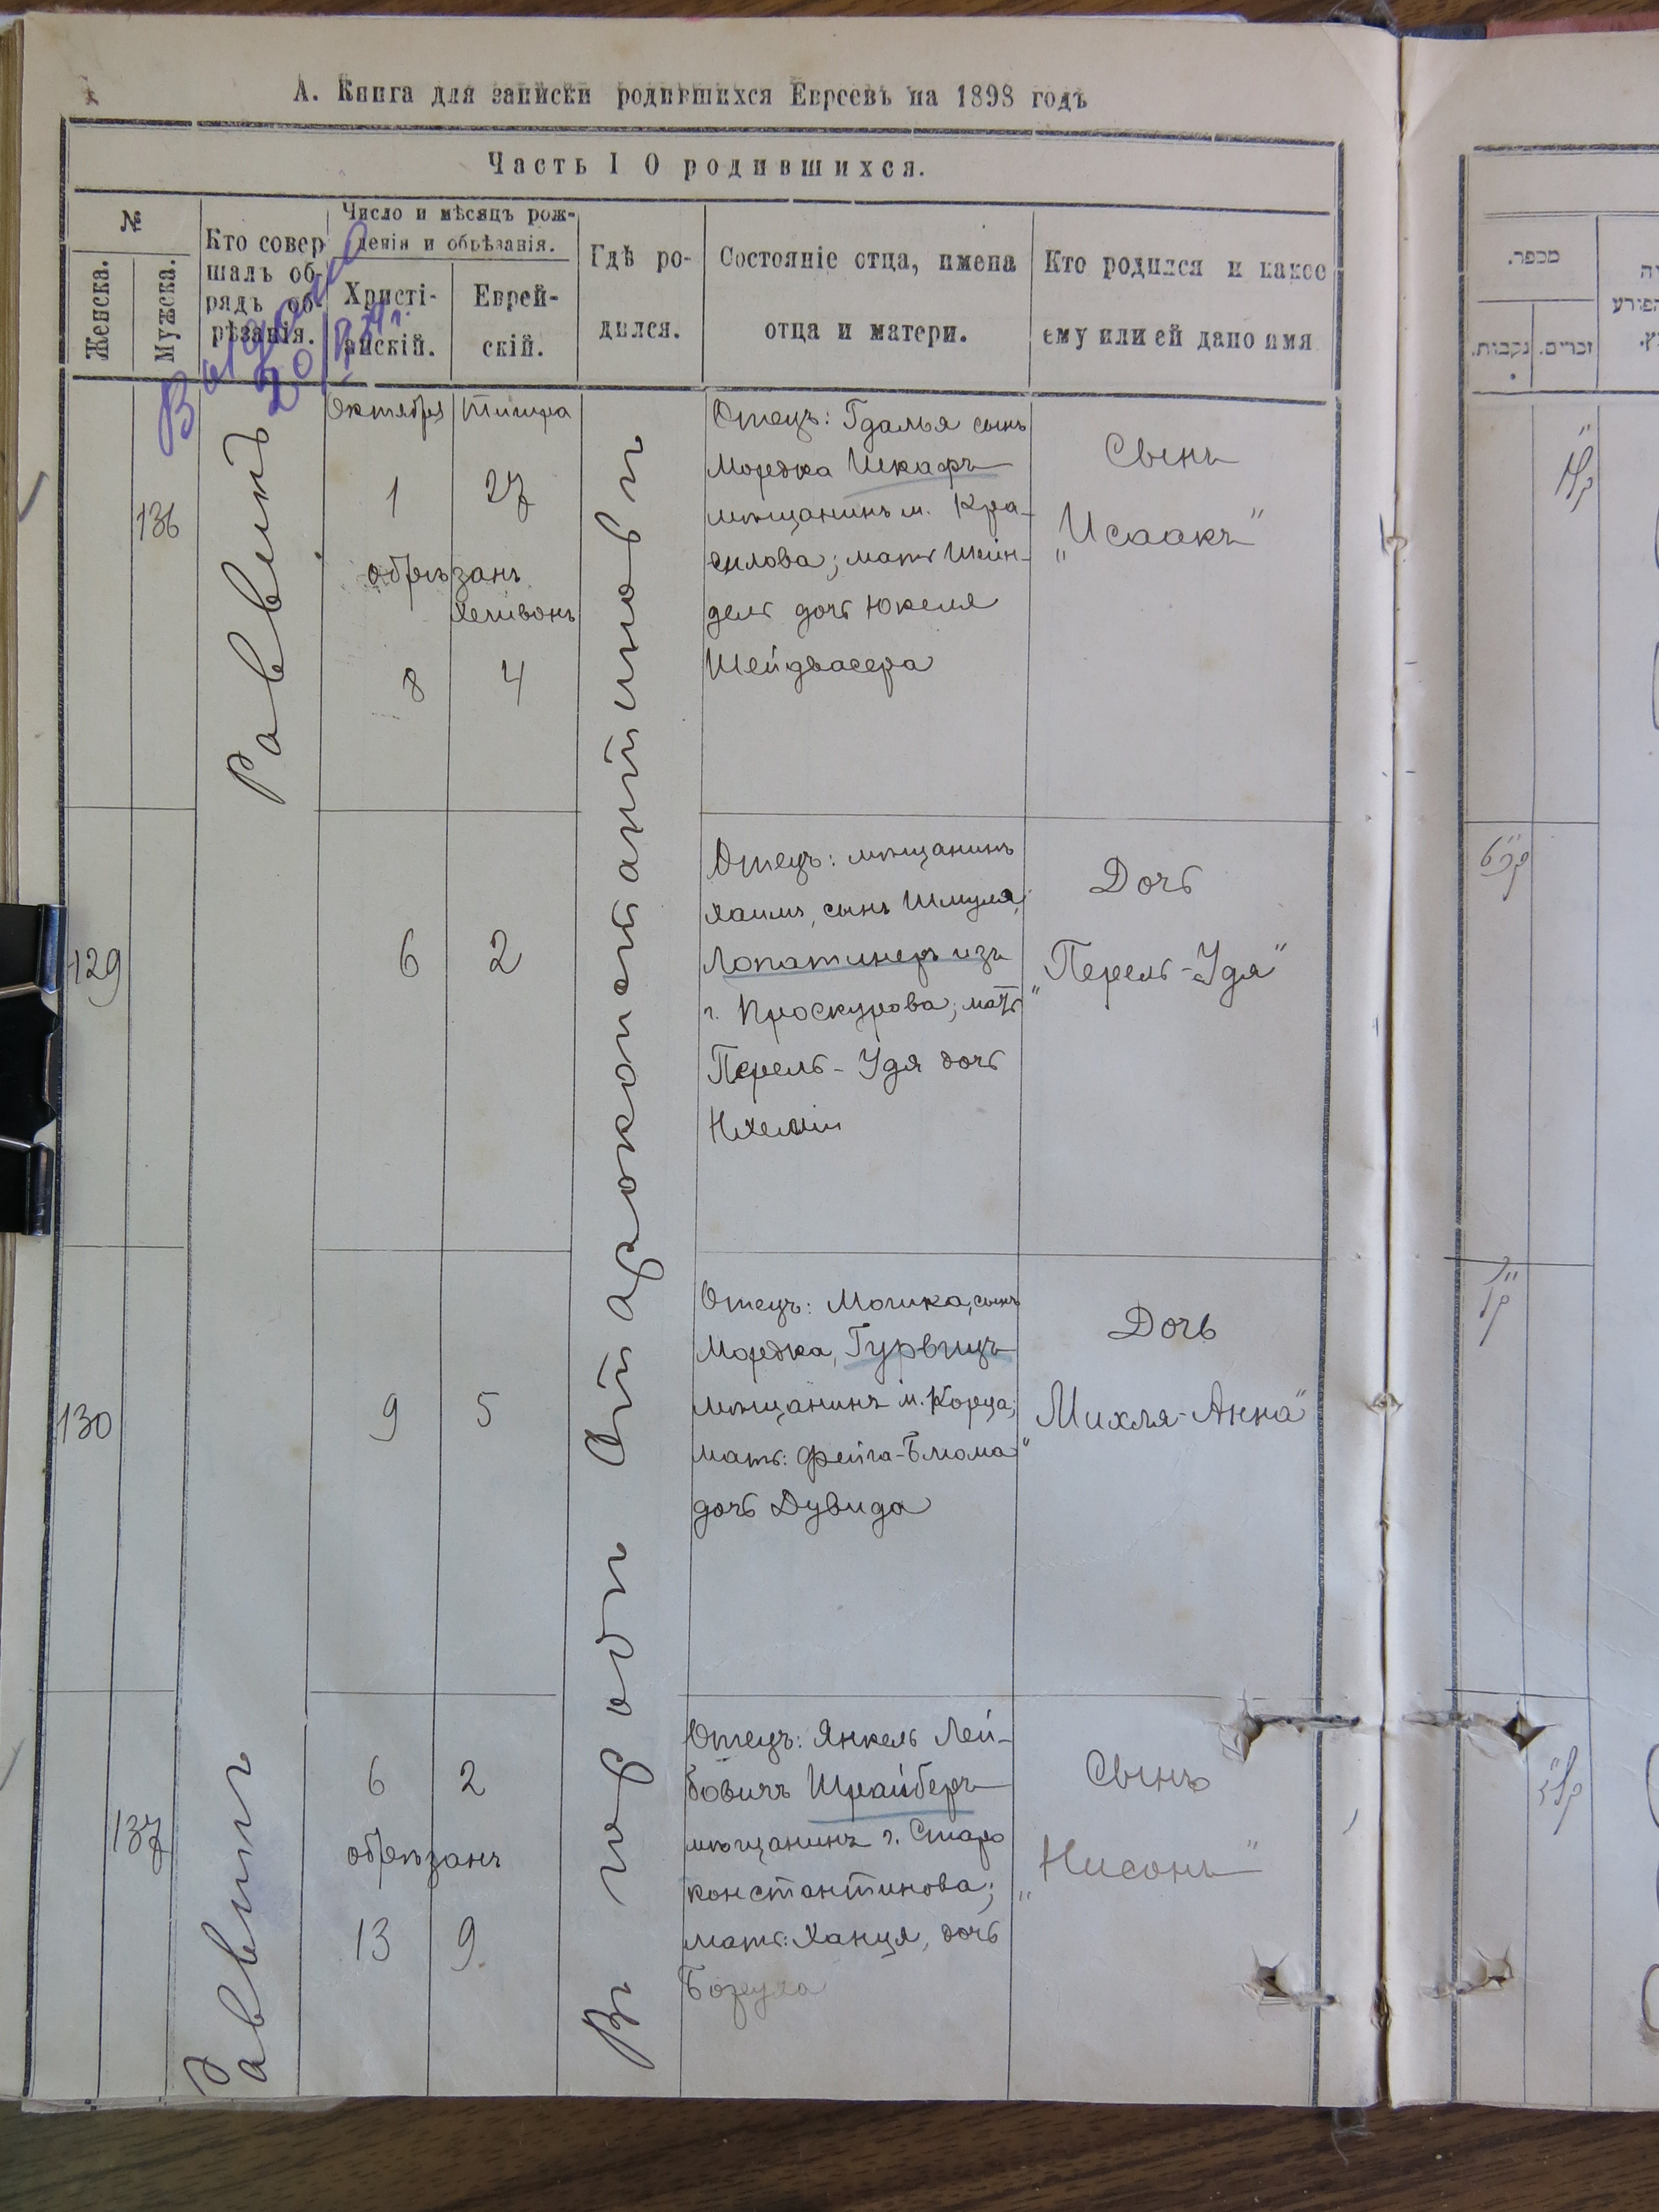 А. Книга для записки родившихся Евреевъ на 1898 годъ
Часть I О родившихся.
№
Женска.
Мужска.
Кто совер
шалъ об-
рядъ об-
рѣзанія.
Число и мѣсяцъ рож-
денія и обрѣзанія.
Христі-
анскій.
Еврей-
скій.
Гдѣ ро-
дился.
Состояніе отца, имена
отца и матери.
Кто родился и какое
ему или ей дано имя
Выдано
20
136
Раввинъ
Октября
Тишра
1
27
обрѣзанъ
Хешвонъ
8
4
Въ городѣ Староконстантиновѣ
Отецъ: Гдалья сынъ
Мордка Шкафъ
мѣщанинъ м. Кра-
силова; мать Шейн-
дель дочь Юкеля
Шейдвасера
Сынъ
„Исаакъ"
129
6
2
Отецъ: мѣщанинъ
Хаимъ, сынъ Шмуля,
Лопатинеръ изъ
г. Проскурова; мать
Перель-Удя дочь
Дочь
„Перель-Удя"
130
9
5
Отецъ: Мошко, сынъ
Мордка, Гурвицъ
мѣщанинъ м. Корца;
мать: Фейга-Блюма
дочь Дувида
Дочь
„Михля-Анна"
137
Раввинъ
6
2
обрѣзанъ
13
9.
Отецъ: Янкель Лей-
бовичъ Шрайберъ
мѣщанинъ г. Старо
константинова;
мать: Ханця, дочь
Боруха
Сынъ
„Нисонъ"
מספר.
נקבות.
זכרים.